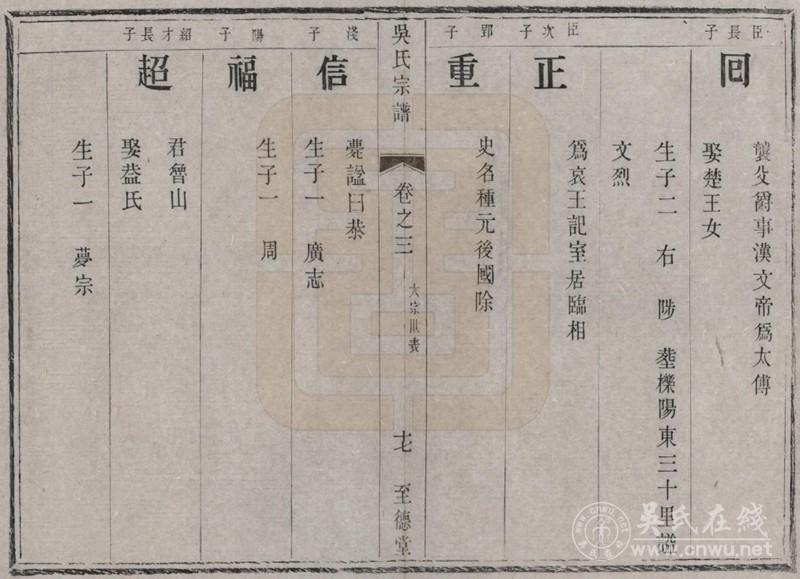 臣長子
回
襲父爵事漢文帝爲太傅
娶楚王女
生子二 右 陟 塟櫟陽東三十里諡
文烈
臣次子
正
爲哀王記室居臨相
郢子
重
史名種元後國除
吳氏宗譜
卷之三
大宗世表
十七
至德堂
淺子
信
薨諡曰恭
生子一 廣志
陽子
福
生子一 周
紹才長子
超
君鲁山
娶益氏
生子一 夢宗
吴氏在线
www.cnwu.net